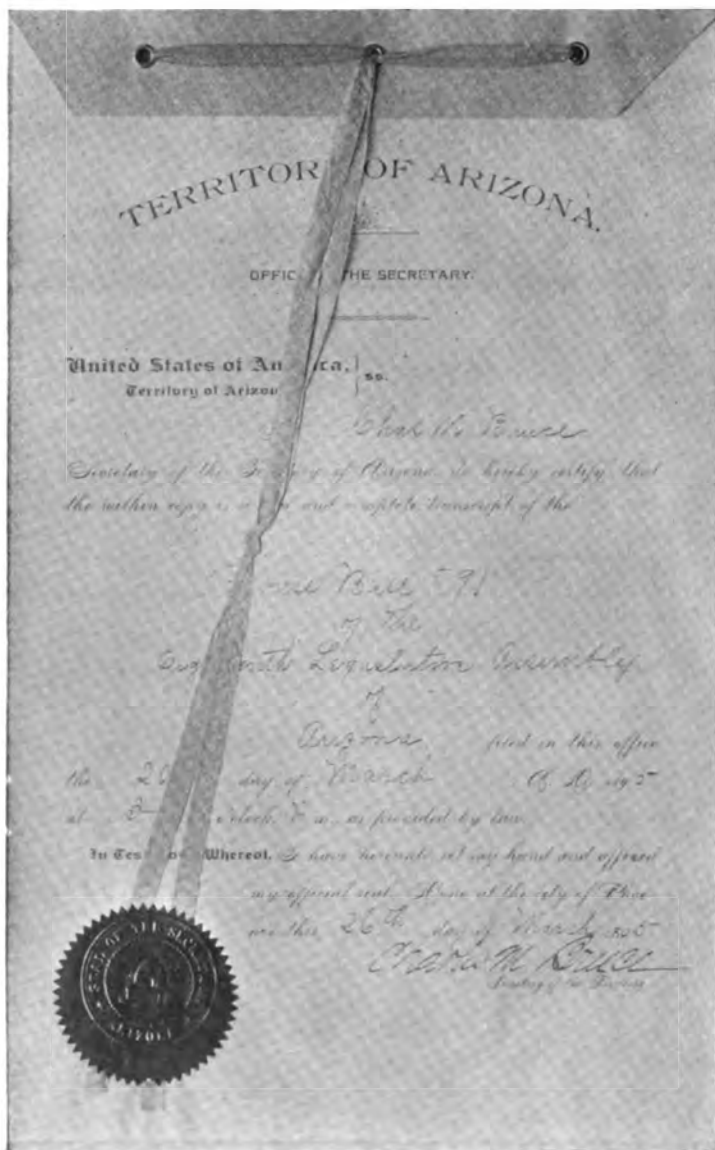 TERRITOR OF ARIZONA.
OFFIC THE SECRETARY.
United States of Am ica,
Territory of Arizon ss.
Chas M. Bruce
Secretary of the Territory of Arizona, do hereby certify that
the within copy is and complete transcript of the
Bill 91
of the
Legislative Assembly
of
Arizona filed in this office
the 26 day of March A. D. 1895
at 3 o'clock P. m. as provided by law.
In Tes Whereof, I have hereunto set my hand and affixed
my official seal. Done at the city of
this 26th day of March
Charles M Bruce
Secretary of the Territory
SEAL OF THE SECRETARY
ARIZONA